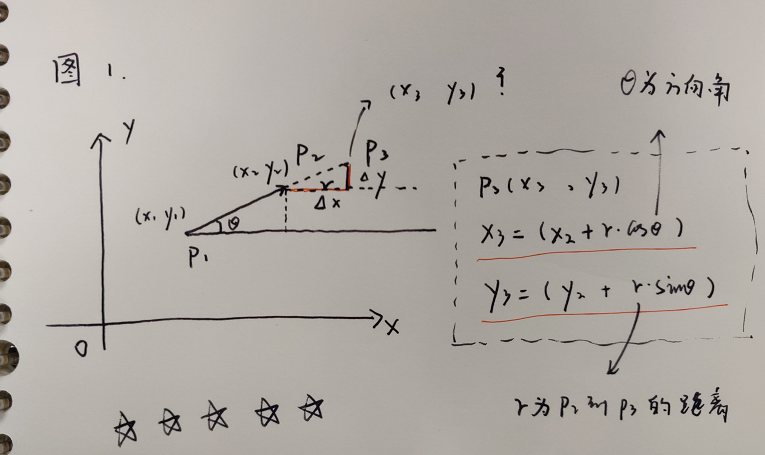 图 1.
(x3 y3) ?
θ为方向角
y
(x2 y2) P2 P3
r Δy
Δx
(x1 y1)
θ
P1
P3(x3, y3)
x3=(x2+r·cosθ)
y3=(y2+r·sinθ)
0
x
r为P2到P3的距离